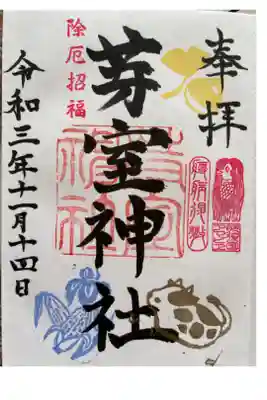 奉拝
芽室神社
除厄招福
令和三年十一月十四日